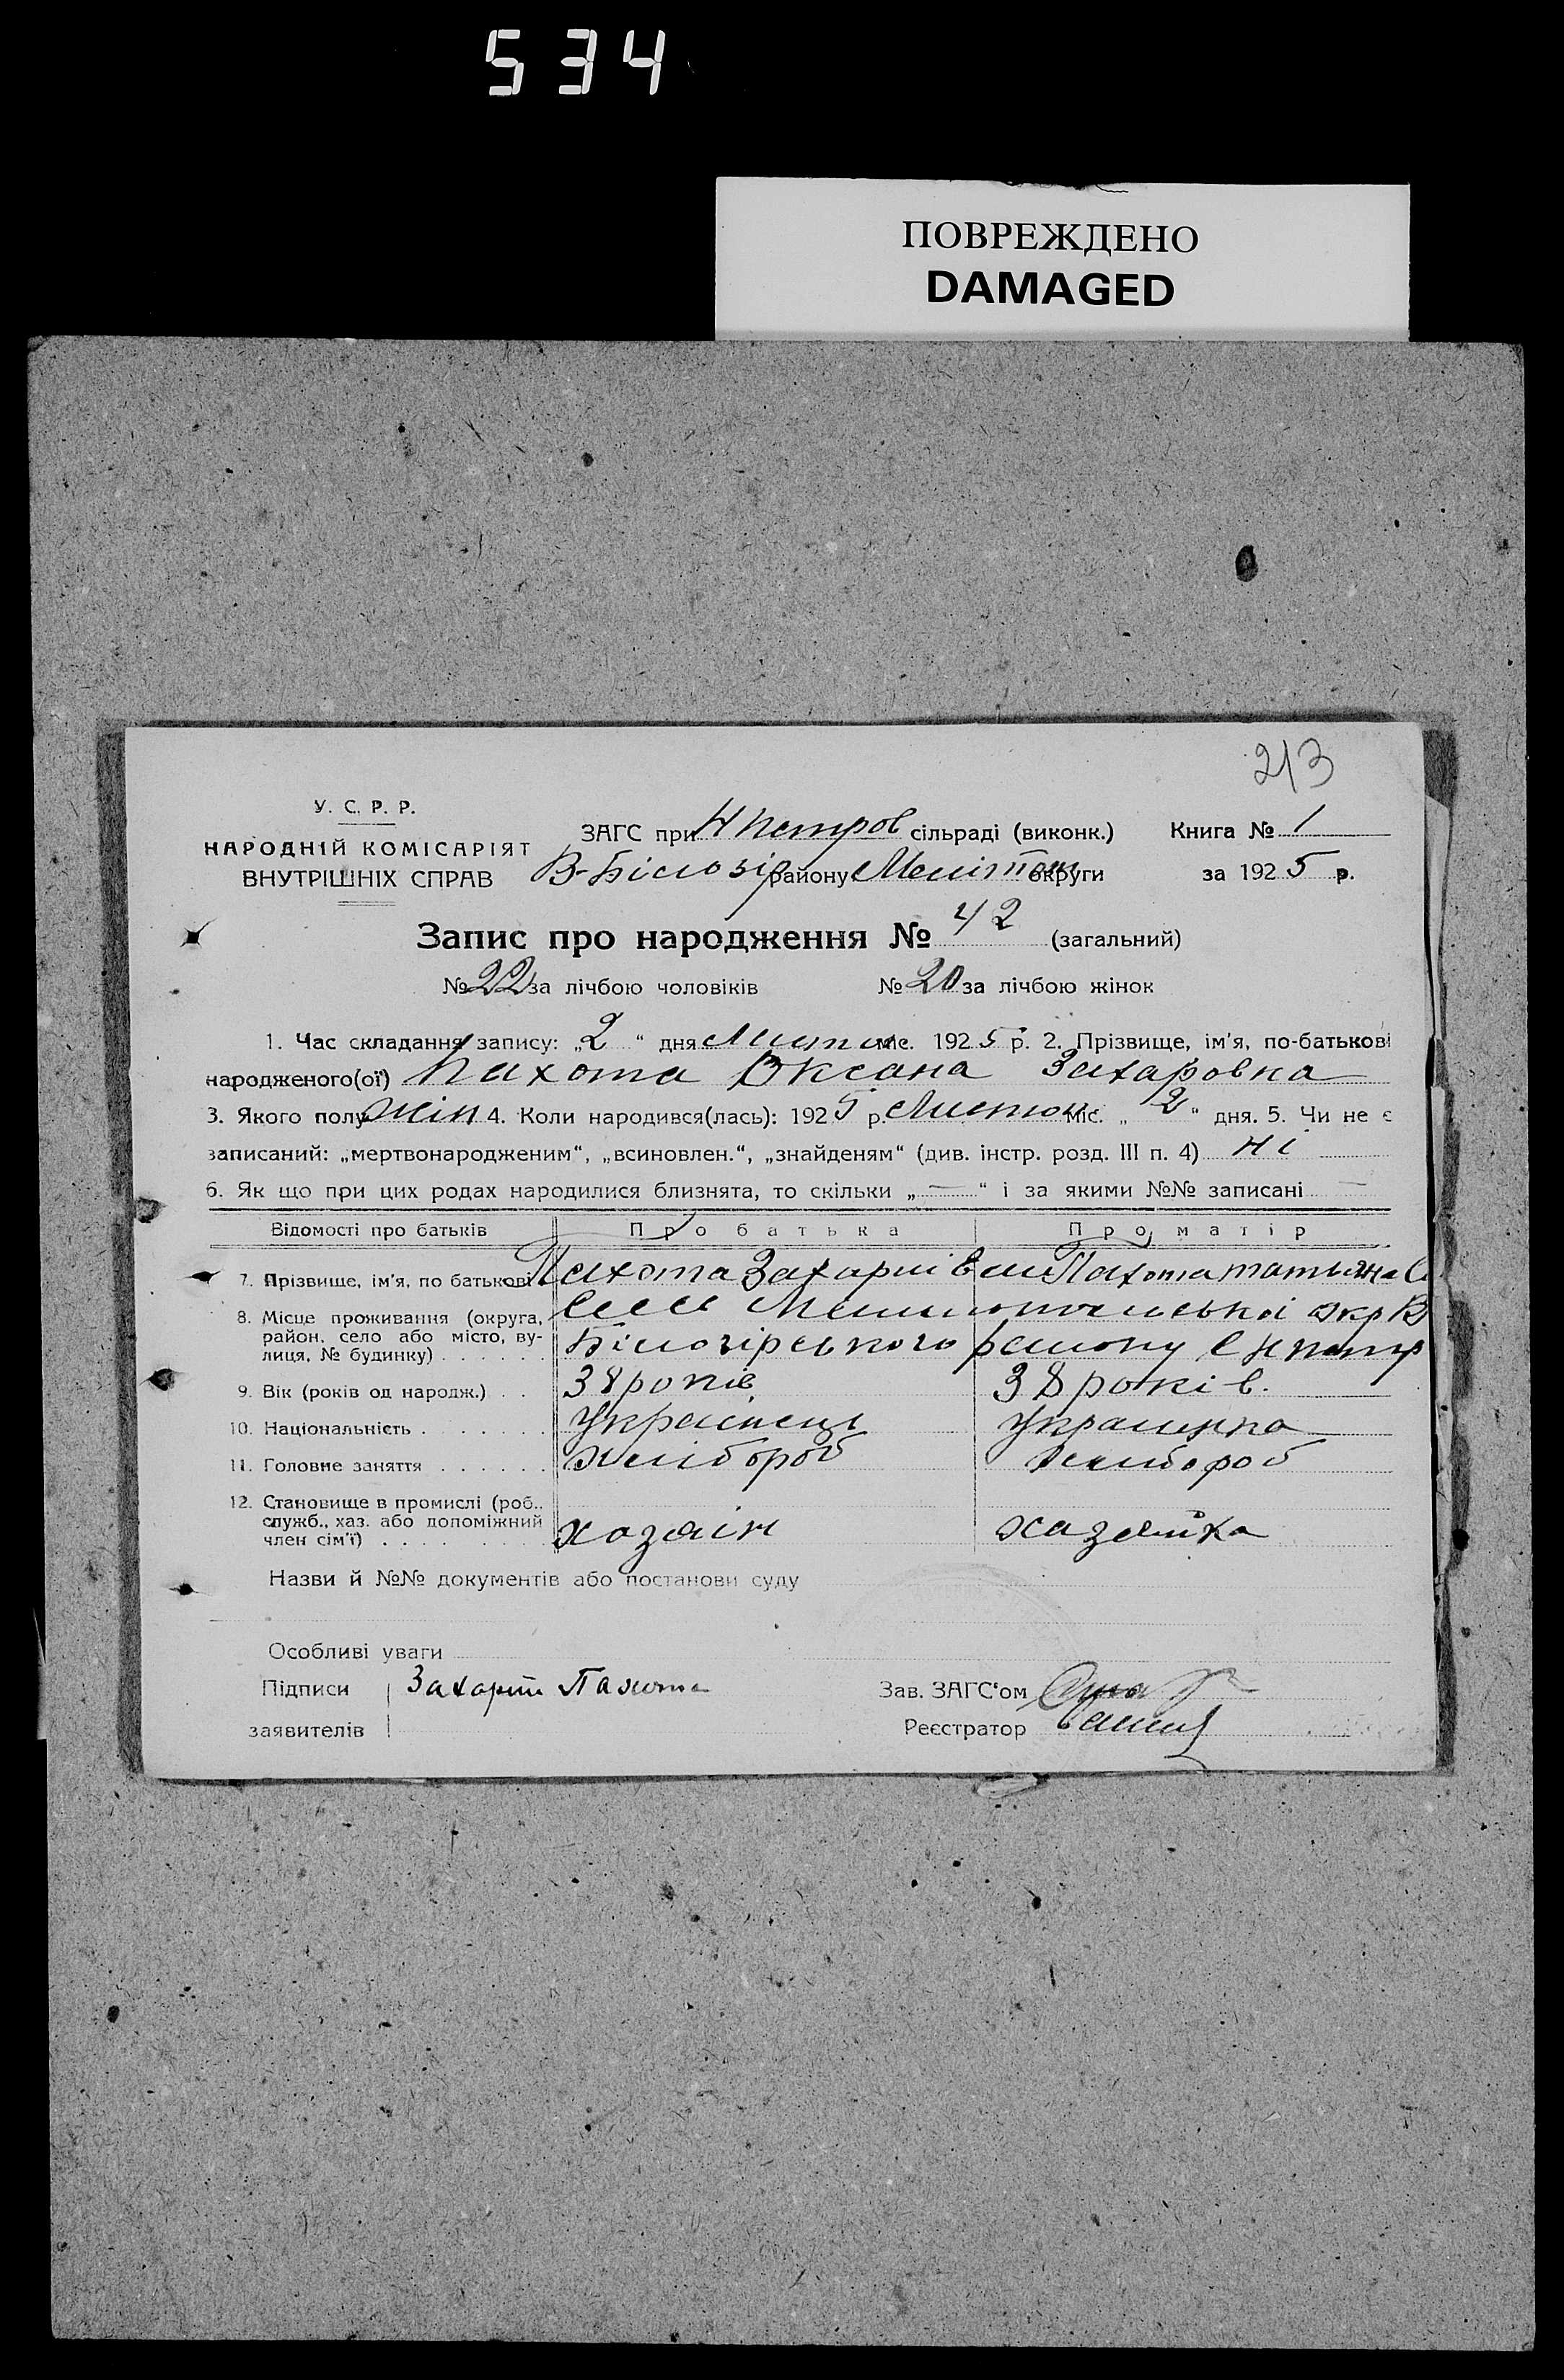 534
ПОВРЕЖДЕНО
DAMAGED
213
У. С. Р. Р.
НАРОДНІЙ КОМІСАРІЯТ
ВНУТРІШНІХ СПРАВ
ЗАГС при Н петров сільраді (виконк.) Книга № 1
В-Білозір району Меліт округи за 1925 р.
Запис про народження № 42 (загальний)
№ 22 за лічбою чоловіків № 20 за лічбою жінок
1. Час складання запису: „2“ дня міс. 1925 р. 2. Прізвище, ім'я, по-батькові
народженого(ої) Пахота Оксана Захаровна
3. Якого полу жін 4. Коли народився(лась): 1925 р. міс. „2“ дня. 5. Чи не є
записаний: „мертвонародженим“, „всиновлен.“, „знайденям“ (див. інстр. розд. III п. 4) ні
6. Як що при цих родах народилися близнята, то скільки „—“ і за якими №№ записані —
Відомості про батьків Про батька Про матір
7. Прізвище, ім'я, по батькові Пахота Захарий Пахота татьяна
8. Місце проживання (округа, район, село або місто, вулиця, № будинку) окр В
Білозірського району с н петр
9. Вік (років од народж.) 38 років 38 років.
10. Національність українець украинка
11. Головне заняття хлібороб хлибороб
12. Становище в промислі (роб., служб., хаз. або допоміжний член сім'ї) хозаін хазяйка
Назви й №№ документів або постанови суду
Особливі уваги
Підписи Захарий Пахота Зав. ЗАГС'ом
заявителів Реєстратор